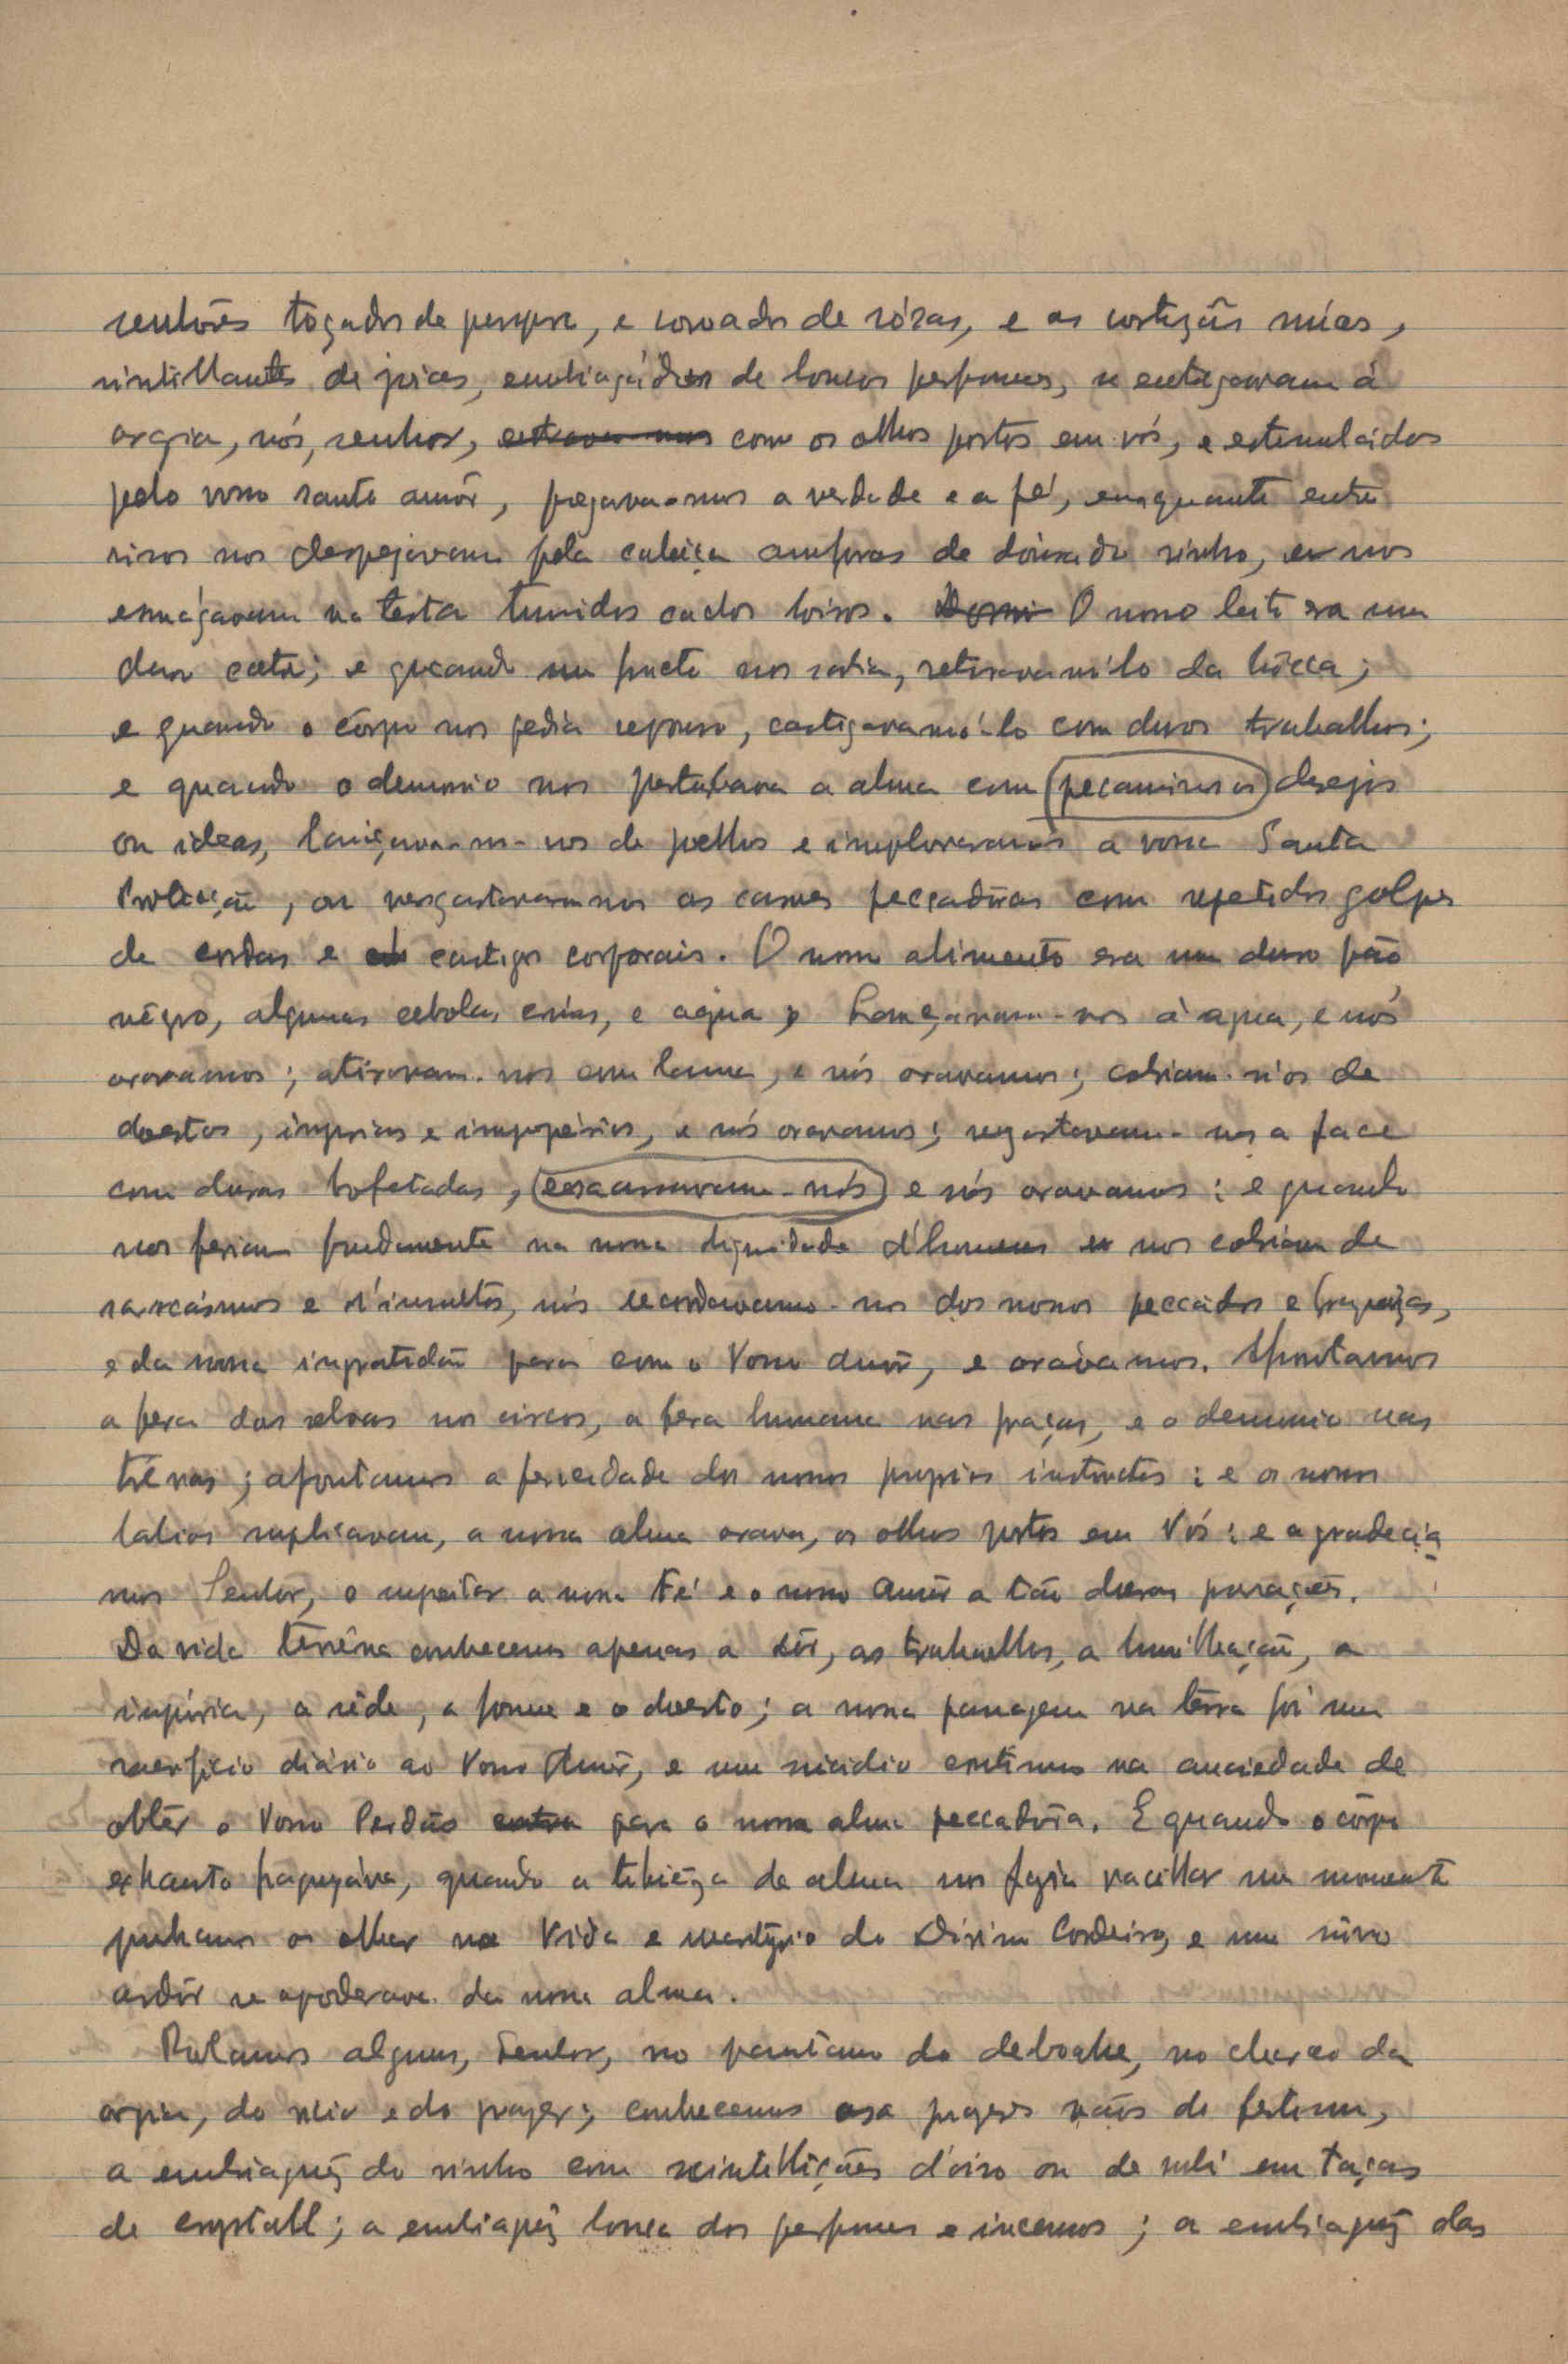 senhôres togados de purpura, e coroados de rózas, e as cortezãs núas,
sintillantes de joias, embriagádas de loucos perfumes, se entregavam á
orgia, nós, senhor, com os olhos postos em vós, e estimuládos
pelo vosso santo amôr, pregavamos a verdade e a fé, emquanto entre
risos nos despejavam pela cabeça amforas de doirado vinho, e nos
esmágavam na testa tumidos cachos loiros. O nosso leito era um
duro catre; e quando um fructo nos sabia, retiravamó-lo da bôcca;
e quando o côrpo nos pedia repouso, castigavamó-lo com duros trabalhos;
e quando o demonio nos pertubava a alma com pecaminosos desejos
ou ideas, lançavam-nos de joelhos e imploravamos a vossa Santa
Protecção, ou vergastavamnos as carnes peccadôras com repetidos golpes
de cordas e castigos corporais. O nosso alimento era um duro pão
nêgro, algumas cebolas crúas, e agua; Lançávam-nos á agua, e nós
oravamos; atiravam-nos com lama, e nós oravamos; cobriam-nos de
doestos, injurias e impropérios, e nós oravamos; vergastavam-nos a face
com duras bofetadas, e nós oravamos; e quando
nos feriam fundamente na nossa dignidade d'homens e nos cobriam de
sarcásmos e d'insultos, nós recordavamo-nos dos nossos peccádos e fraquêzas,
e da nossa ingratidão para com o Vosso Amôr, e orávamos. Afrontamos
a fera das selvas nos circos, a fera humana nas praças, e o demonio nas
trévas; afrontamos a ferocidade dos nossos proprios instinctos; e os nossos
labios suplicavam, a nossa alma orava, os olhos postos em Vós; e agradecia
mos Senhôr, o sugeitar a nossa Fé e o nosso Amôr a tão duras provações.
Da vida terrêna conhecemos apenas a dôr, os trabalhos, a humilhação, a
injúria, a sêde, a fome e o doesto; a nossa passagem na terra foi um
sacrificio diário ao Vosso Amôr, e um suicidio continuo na anciedade de
obtêr o Vosso Perdão para a nossa alma peccadôra. E quando o côrpo
exhausto fraquejáva, quando a tibiêza da alma nos fazia vacillar um momento
punhamos os olhos na Vida e martyrio do Divino Cordeiro, e um nôvo
ardôr se apoderava da nossa alma.
Rolamos alguns, Senhor, no pantano do deboche, no charco da
orgia, do vicio e do prazer; conhecemos os prazeres vãos do festim,
a embriaguêz do vinho com scintillações d'oiro ou de rubi em taças
de crystall; a embriaguêz louca dos perfumes e incensos; a embriaguêz das